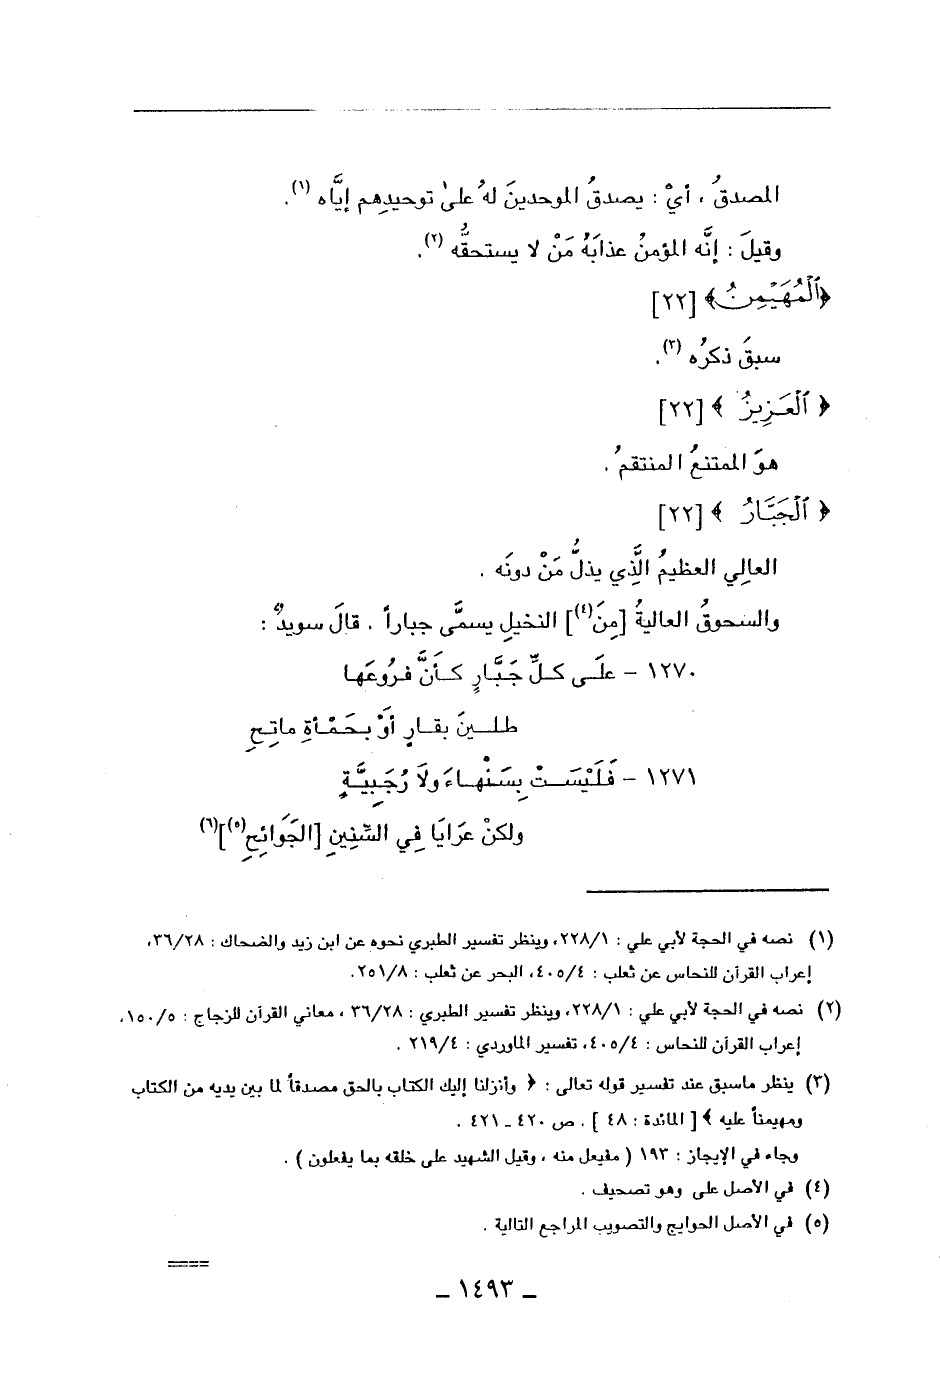 المصدقُ ، أيْ : يصدقُ الموحدينَ لهُ علىٰ توحيدِهم إيَّاه (١).
وقيلَ : إنَّه المؤمنُ عذابَهُ مَنْ لا يستحقُّه (٢).
﴿ٱلْمُهَيْمِنُ﴾ [٢٢]
سبقَ ذكرُه (٣).
﴿ ٱلْعَزِيزُ ﴾ [٢٢]
هوَ الممتنعُ المنتقمُ .
﴿ ٱلْجَبَّارُ ﴾ [٢٢]
العالِي العظيمُ الَّذِي يذلُّ مَنْ دونَه .
والسحوقُ العاليةُ [مِنَ(٤)] النخيلِ يسمَّى جباراً . قالَ سويدٌ :
١٢٧٠ – علَى كلِّ جَبَّارٍ كأنَّ فروُعَها
طلينَ بقارٍ أوْ بحَمْأةِ ماتِحِ
١٢٧١ – فَلَيْسَتْ بِسَنْهاءَ ولاَ رُجَبِيَّةٍ
ولكنْ عرَايَا فِي السِّنِينِ [الجَوَائِحِ(٥)](٦)
(١) نصه في الحجة لأبي علي : ٢٢٨/١، وينظر تفسير الطبري نحوه عن ابن زيد والضحاك : ٣٦/٢٨،
إعراب القرآن للنحاس عن ثعلب : ٤٠٥/٤، البحر عن ثعلب : ٢٥١/٨.
(٢) نصه في الحجة لأبي علي : ٢٢٨/١، وينظر تفسير الطبري : ٣٦/٢٨ ، معاني القرآن للزجاج : ١٥٠/٥،
إعراب القرآن للنحاس : ٤٠٥/٤، تفسير الماوردي : ٢١٩/٤ .
(٣) ينظر ماسبق عند تفسير قوله تعالى : ﴿ وأنزلنا إليك الكتاب بالحق مصدقاً لما بين يديه من الكتاب
ومهيمناً عليه ﴾ [ المائدة : ٤٨ ] . ص ٤٢٠ ـ ٤٢١ .
وجاء في الإيجاز : ١٩٣ ( مفيعل منه ، وقيل الشهيد على خلقه بما يفعلون ) .
(٤) في الأصل على وهو تصحيف .
(٥) في الأصل الحوايج والتصويب المراجع التالية .
====
ـ ١٤٩٣ ـ